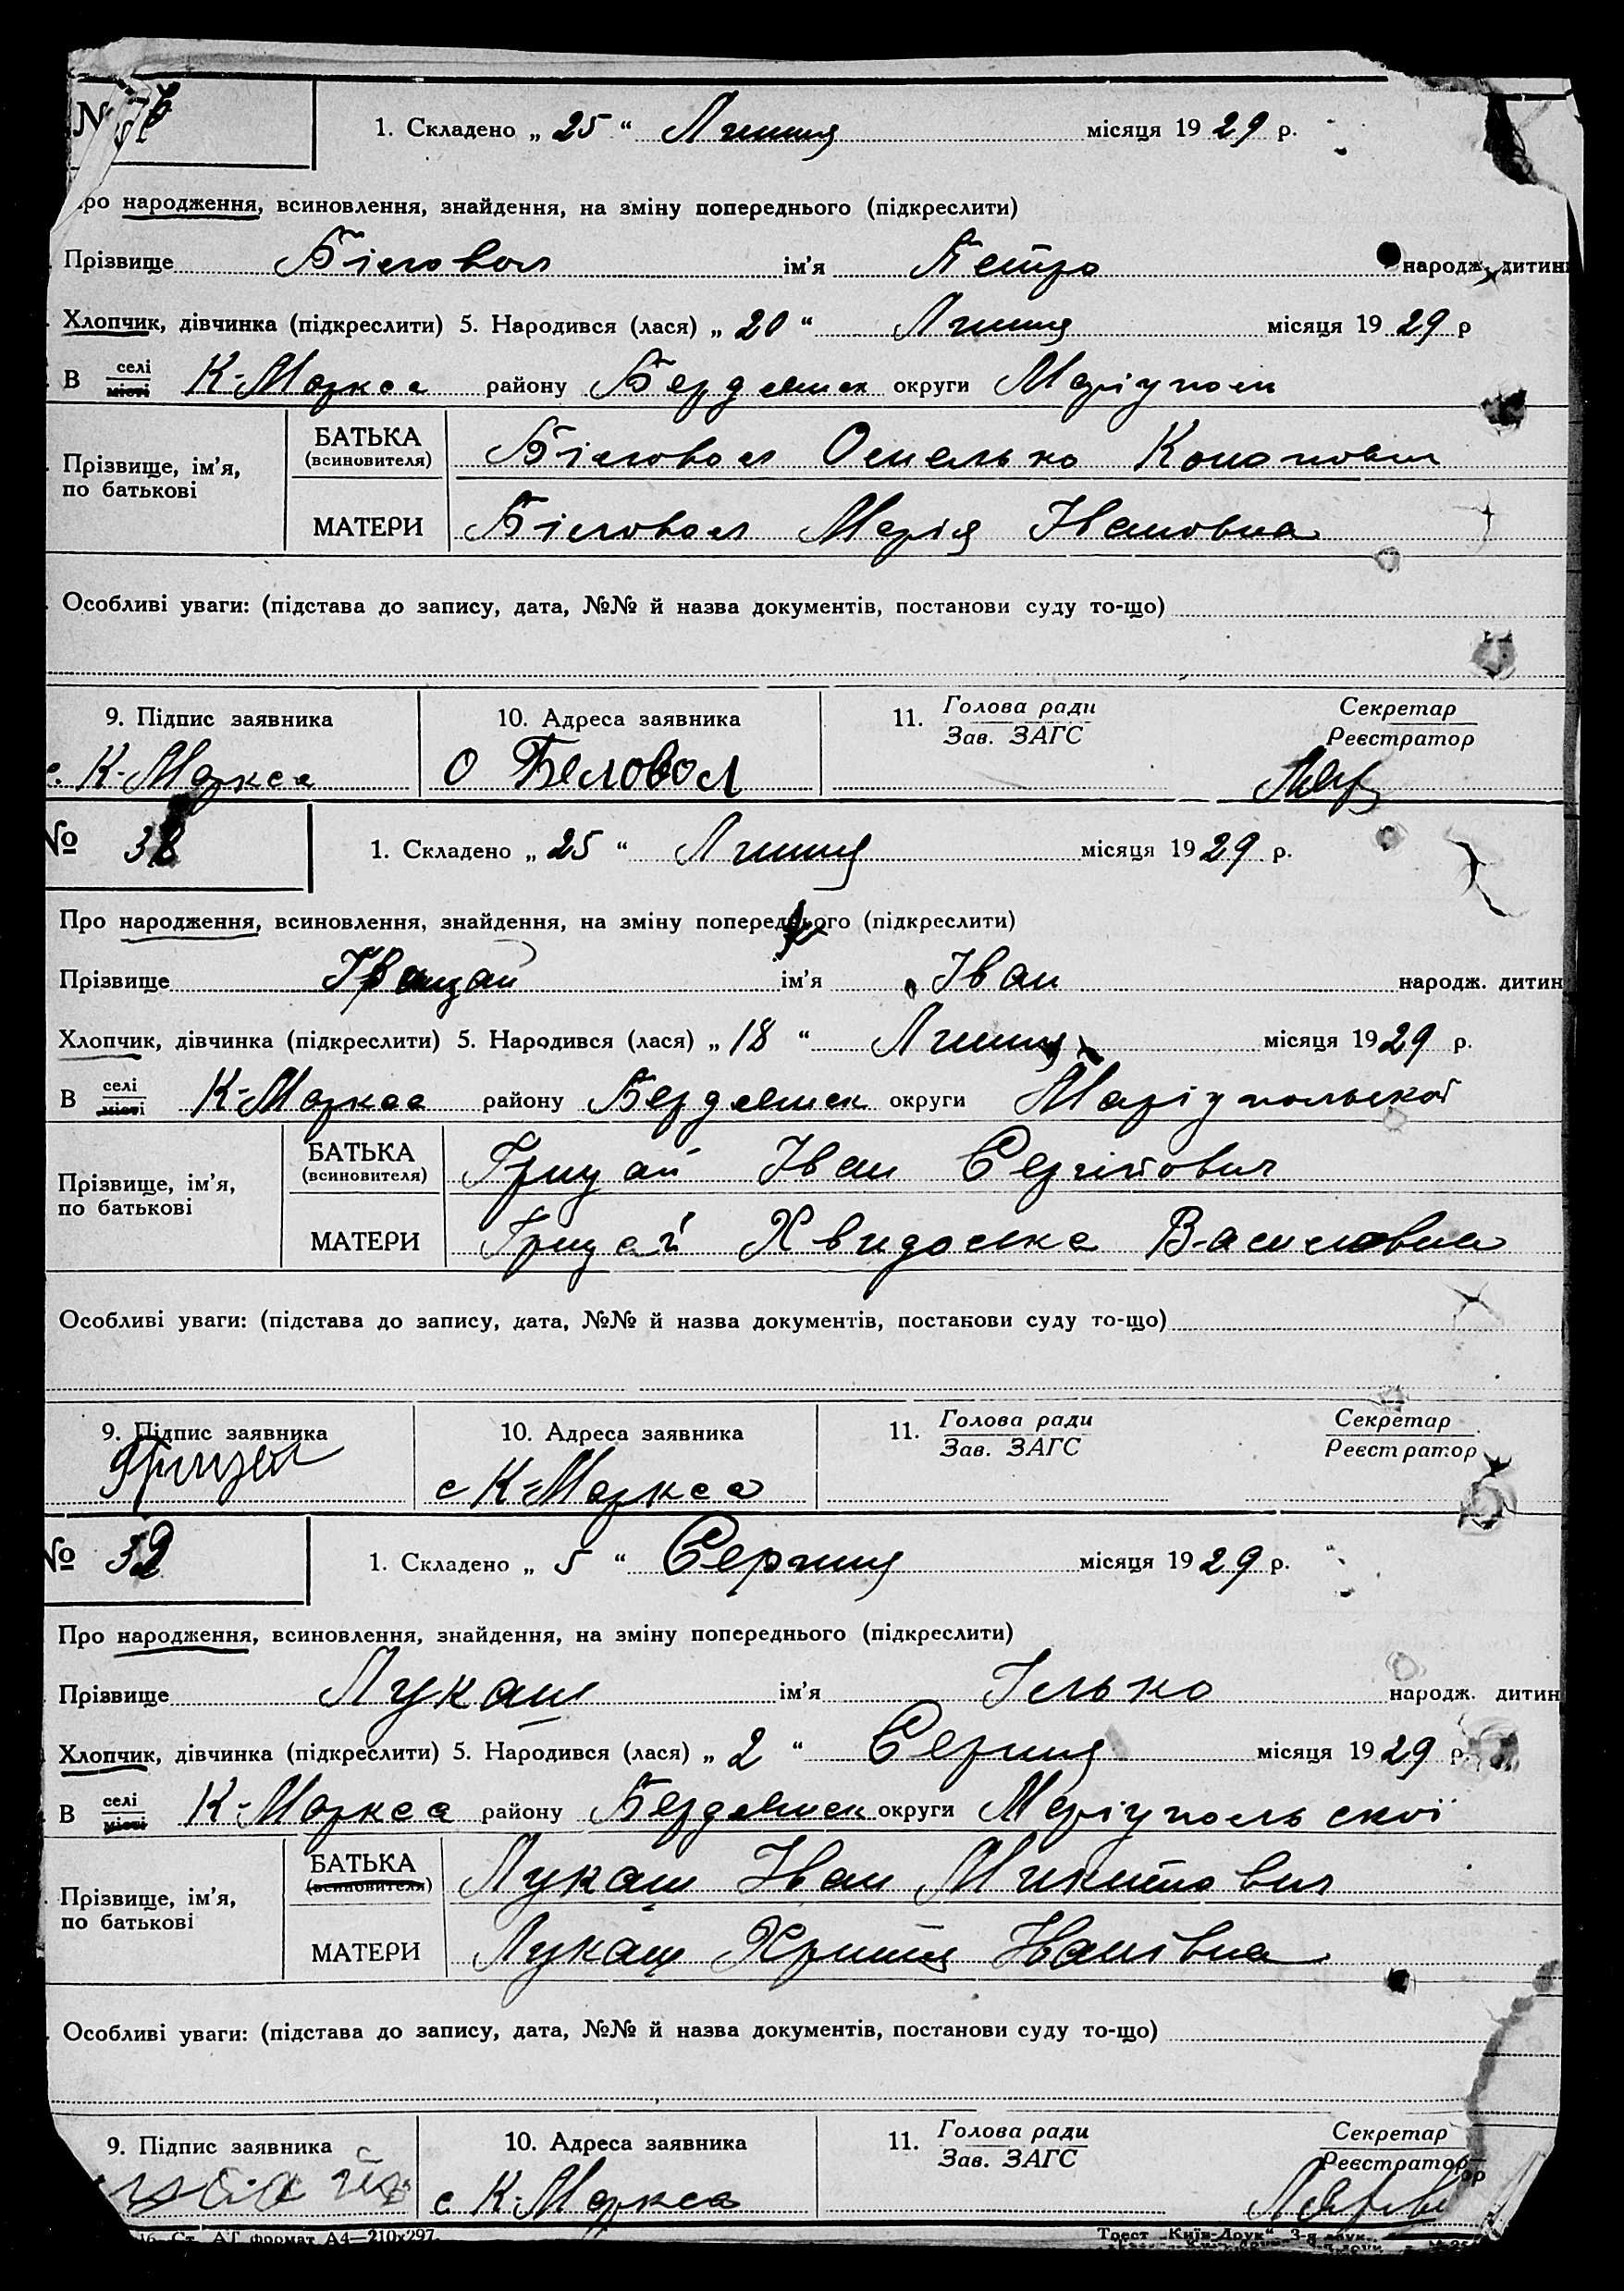 №
1. Складено „ 25 “ Липня місяця 19 29 р.
ро народження, всиновлення, знайдення, на зміну попереднього (підкреслити)
Прізвище Біловол ім'я Петро народж. дитин
Хлопчик, дівчинка (підкреслити) 5. Народився (лася) „ 20 “ Липня місяця 19 29 р
В селі місті К-Маркса району Бердянськ округи Маріуполь
БАТЬКА (всиновителя) Біловол Омелько Кононович
Прізвище, ім'я, по батькові
МАТЕРИ Біловол Марія Івановна
Особливі уваги: (підстава до запису, дата, №№ й назва документів, постанови суду то-що)
9. Підпис заявника 10. Адреса заявника 11. Голова ради Зав. ЗАГС Секретар Реєстратор
с. К-Маркса О Беловол
№ 38 1. Складено „ 25 “ Липня місяця 19 29 р.
Про народження, всиновлення, знайдення, на зміну попереднього (підкреслити)
Прізвище Грицай ім'я Іван народж. дитин
Хлопчик, дівчинка (підкреслити) 5. Народився (лася) „ 18 “ Липня місяця 19 29 р.
В селі місті К-Маркса району Бердянськ округи Маріупольской
БАТЬКА (всиновителя) Грицай Іван Сергійович
Прізвище, ім'я, по батькові
МАТЕРИ Грицай Хвидоська Василовна
Особливі уваги: (підстава до запису, дата, №№ й назва документів, постанови суду то-що)
9. Підпис заявника 10. Адреса заявника 11. Голова ради Зав. ЗАГС Секретар Реєстратор
Грицай с К-Маркса
№ 39 1. Складено „ 5 “ Серпня місяця 19 29 р.
Про народження, всиновлення, знайдення, на зміну попереднього (підкреслити)
Прізвище Лукаш ім'я Ілько народж. дитин
Хлопчик, дівчинка (підкреслити) 5. Народився (лася) „ 2 “ Серпня місяця 19 29 р.
В селі місті К-Маркса району Бердянськ округи Маріупольскої
БАТЬКА (всиновителя) Лукаш Іван Микитович
Прізвище, ім'я, по батькові
МАТЕРИ Лукаш Христя Іванівна
Особливі уваги: (підстава до запису, дата, №№ й назва документів, постанови суду то-що)
9. Підпис заявника 10. Адреса заявника 11. Голова ради Зав. ЗАГС Секретар Реєстратор
с К-Маркса
Ст. АГ формат А4—210х297. Трест „Київ-Друк“ 3-я друк.